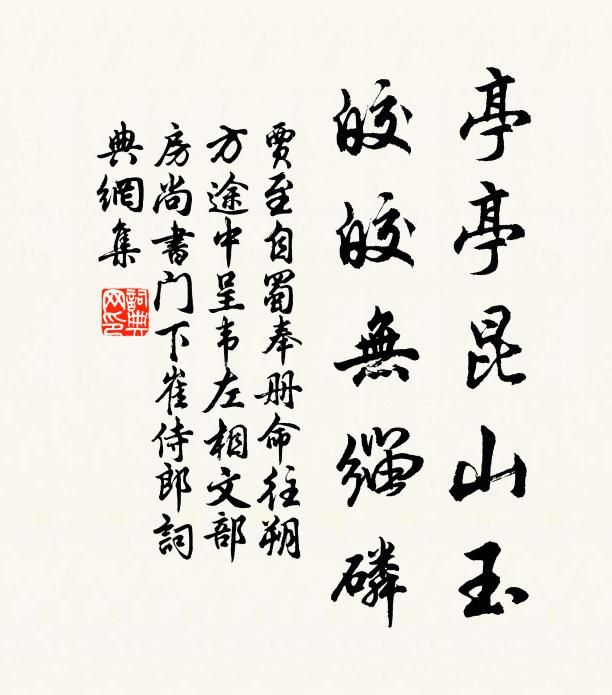 亭亭昆山玉
皎皎無緇磷
賈至自蜀奉册命往朔
方途中呈韦左相文部
房尚書门下崔侍郎詞
典網集
詞典网印